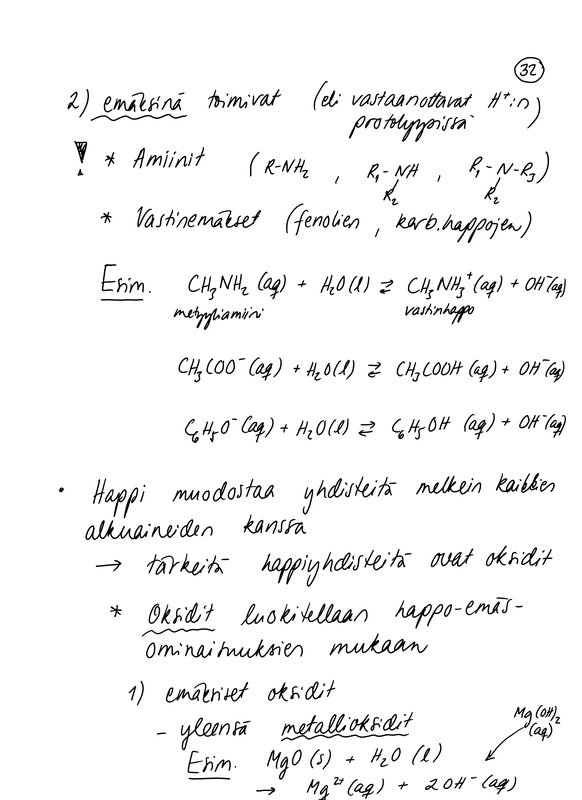 32
2) emäksinä toimivat (eli vastaanottavat H⁺:n)
protolyysissä
! * Amiinit (R-NH₂ , R₁-NH , R₁-N-R₃)
R₂ R₂
* Vastinemäkset (fenolien , karb.happojen)
Esim. CH₃NH₂ (aq) + H₂O(l) ⇄ CH₃NH₃⁺(aq) + OH⁻(aq)
metyyliamiini vastinhappo
CH₃COO⁻(aq) + H₂O(l) ⇄ CH₃COOH (aq) + OH⁻(aq)
C₆H₅O⁻(aq) + H₂O(l) ⇄ C₆H₅OH (aq) + OH⁻(aq)
• Happi muodostaa yhdisteitä melkein kaikkien
alkuaineiden kanssa
→ tärkeitä happiyhdisteitä ovat oksidit
* Oksidit luokitellaan happo-emäs-
ominaisuuksien mukaan
1) emäksiset oksidit
- yleensä metallioksidit
Mg(OH)₂
(aq)
Esim. MgO (s) + H₂O (l)
→ Mg²⁺(aq) + 2OH⁻(aq)